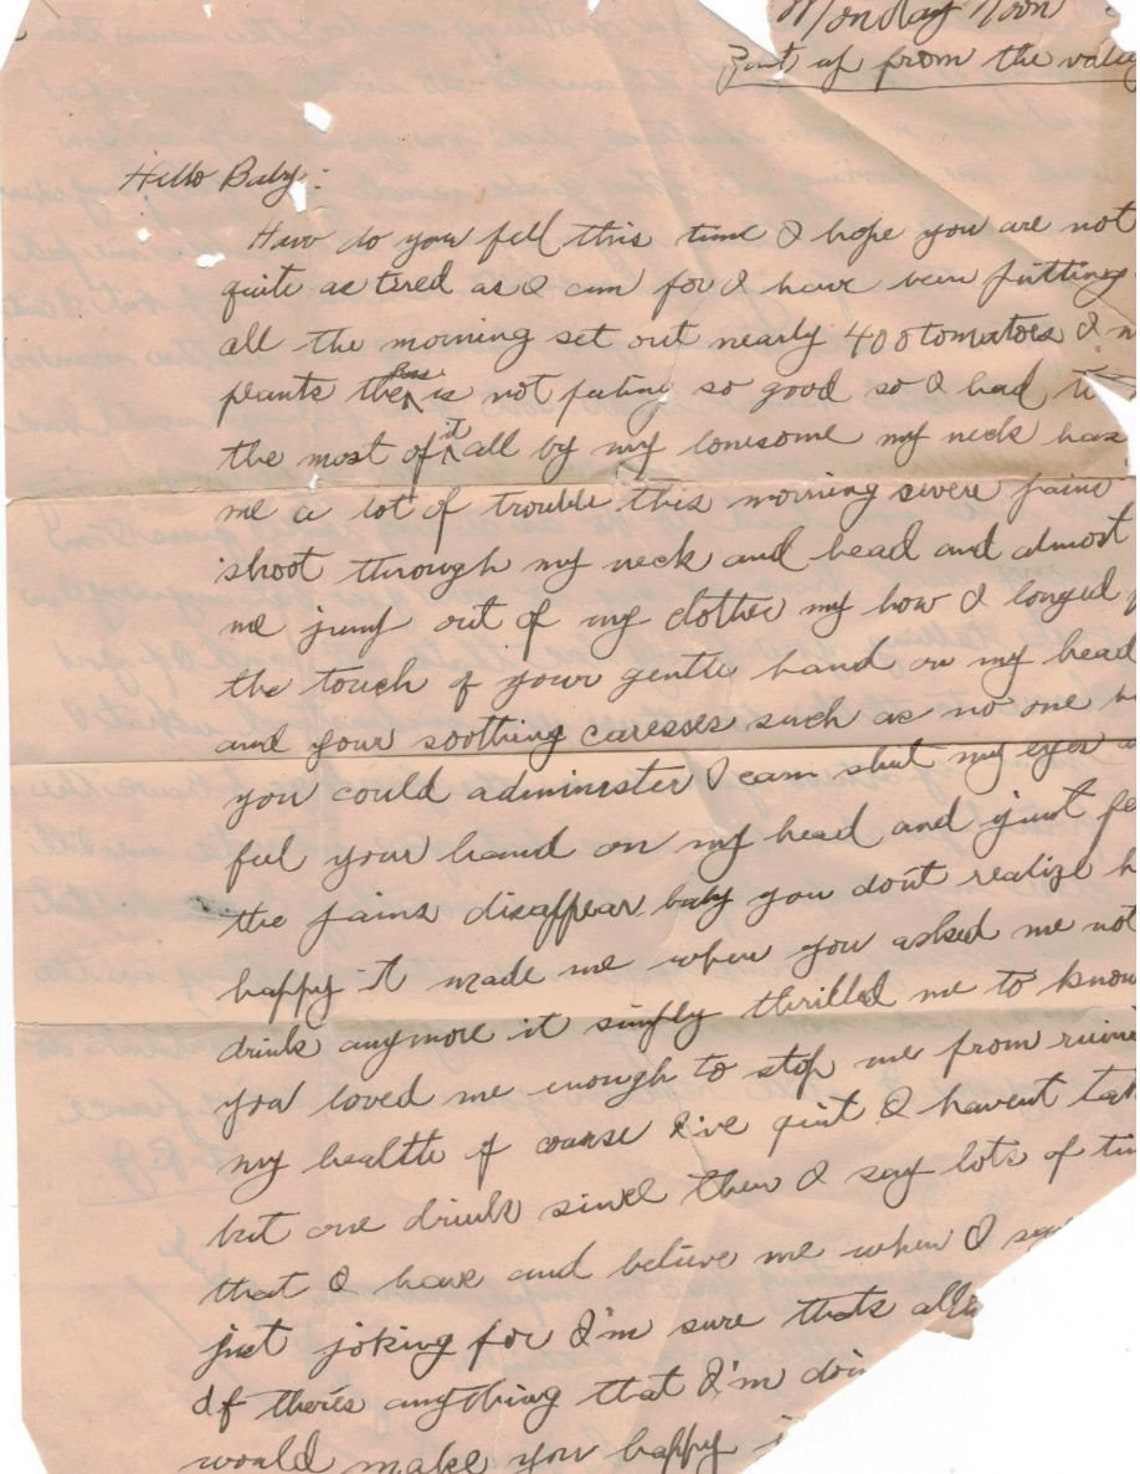 Monday Noon
Just up from the valley
Hello Baby:
How do you fell this time I hope you are not
quite as tired as I am for I have been putting
all the morning set out nearly 400 tomatoes
plants the is not feeling so good so I had to
the most of it all by my lonesome my neck has
me a lot of trouble this morning severe pains
shoot through my neck and head and almost
me jump out of my clothes my how I longed
the touch of your gentle hand on my head
and your soothing caresses such as no one
you could administer I can shut my eyes
feel your hand on my head and just
the pains disappear baby you don't realize
happy it made me when you asked me not
drink anymore it simply thrilled me to know
you loved me enough to stop me from
my health of course I've quit I havent
but one drink since then I say lots of
that I have and believe me when I
just joking for I'm sure thats
If there's anything that I'm
would make you happy